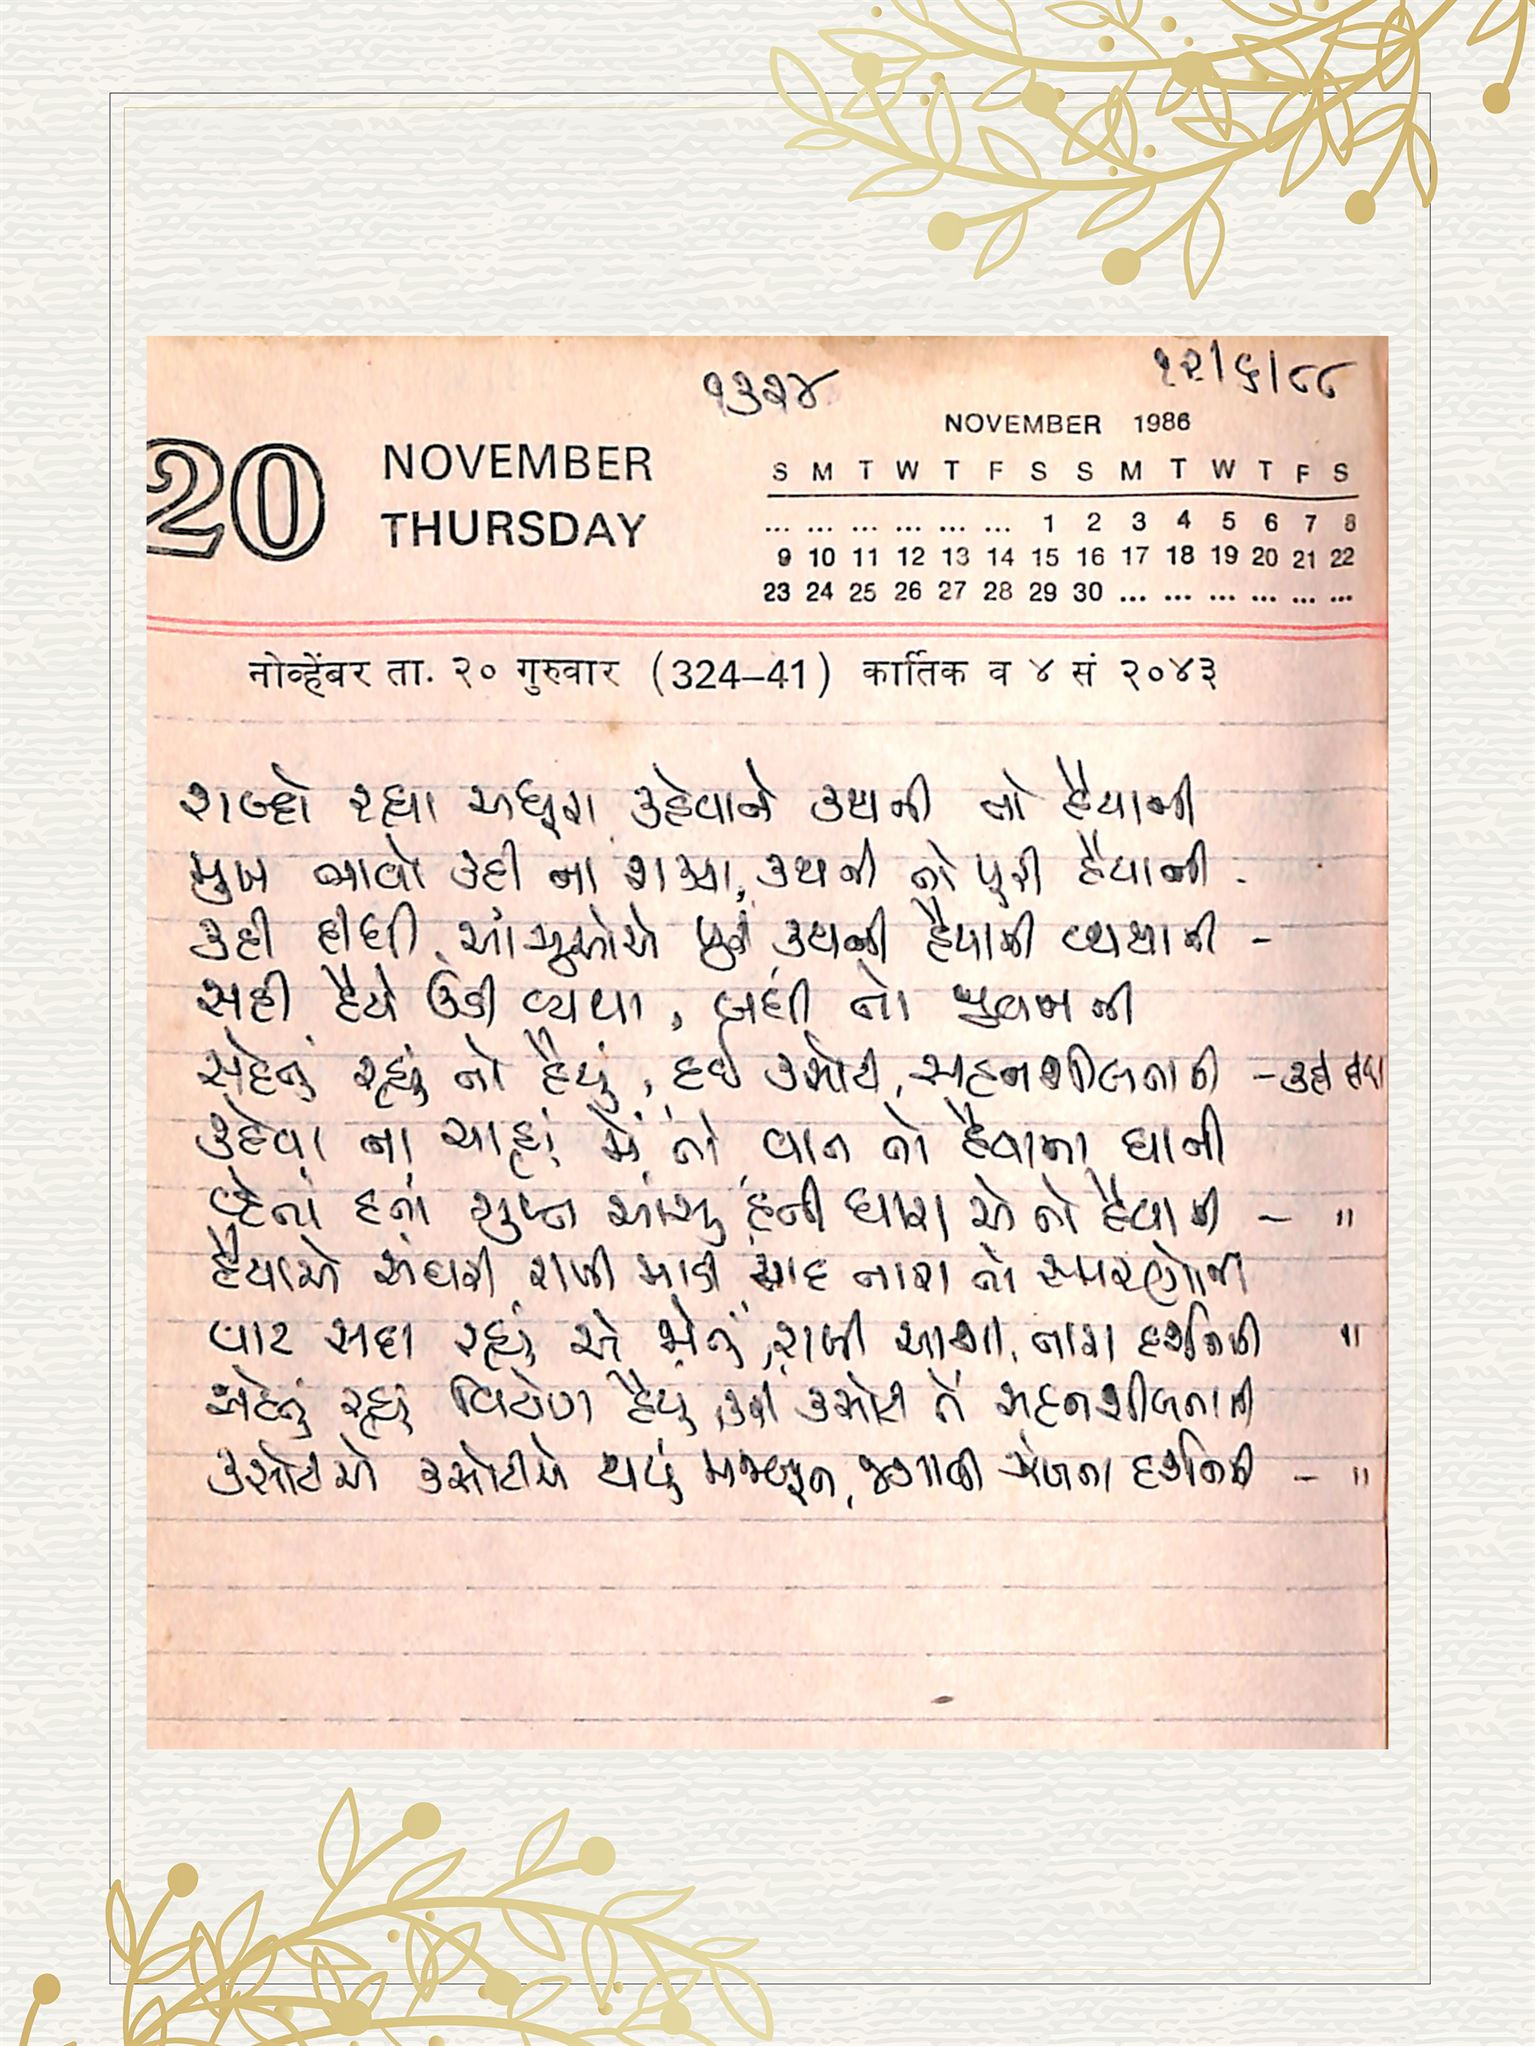 ૧૩૨૪
૧૨/૬/૮૮
20 NOVEMBER THURSDAY
NOVEMBER 1986
S M T W T F S S M T W T F S
... ... ... ... ... ... 1 2 3 4 5 6 7 8
9 10 11 12 13 14 15 16 17 18 19 20 21 22
23 24 25 26 27 28 29 30 ... ... ... ... ... ...
नोव्हेंबर ता. २० गुरुवार (324-41) कार्तिक व ४ सं २०४३
શબ્દો રહ્યા અધૂરા કહેવાને કથની તો હૈયાની
મુખ ભાવો કહી ના શક્યા, કથની તો પુરી હૈયાની -
કહી દીધી આંસુઓએ કથની હૈયાની વ્યથાની -
સહી હૈયે ઊંડી વ્યથા, બધી તો
સહેતું રહ્યું તો હૈયું, દઈ કસોટી, સહનશીલતાની -
કહેવા ના ચાહ્યું મેં તો વાત તો હૈયાના ઘાની
વ્હેતાં હતાં ગુપ્ત આંસુ હતી ધારા એ તો હૈયાની - "
હૈયાએ સંઘરી રાખી માડી યાદ તારા તો સ્મરણોની
વાટ સદા રહ્યું એ જોતું, રાખી આશા તારા દર્શનની "
સહેતું રહ્યું વિયોગ હૈયું કરી કસોટી તેં સહનશીલતાની
કસોટીએ કસોટીએ થયું મજબૂત, જગાવી ઝંખના દર્શનની - "